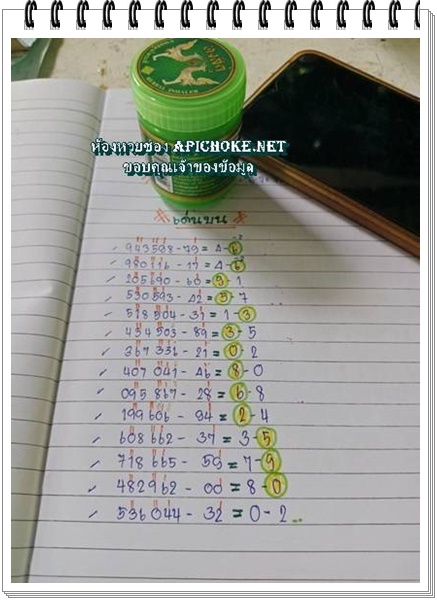 HERBAL INHALER
ห้องหวยซอง APICHOKE.NET
ขอบคุณเจ้าของข้อมูล
เด่นบน
943598-79=4-6
980116-17=4-6
205690-60=9-1
530593-42=5-7
518504-31=1-3
434503-89=3-5
367336-21=0-2
407041-46=8-0
095867-28=6-8
199606-94=2-4
608662-37=3-5
718665-59=7-9
482962-00=8-0
536044-32=0-2..